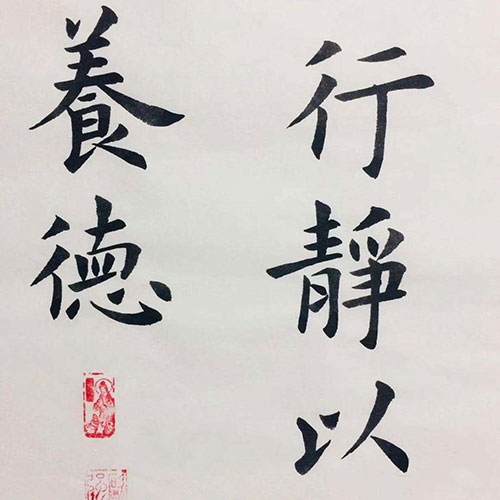 行靜以
養德